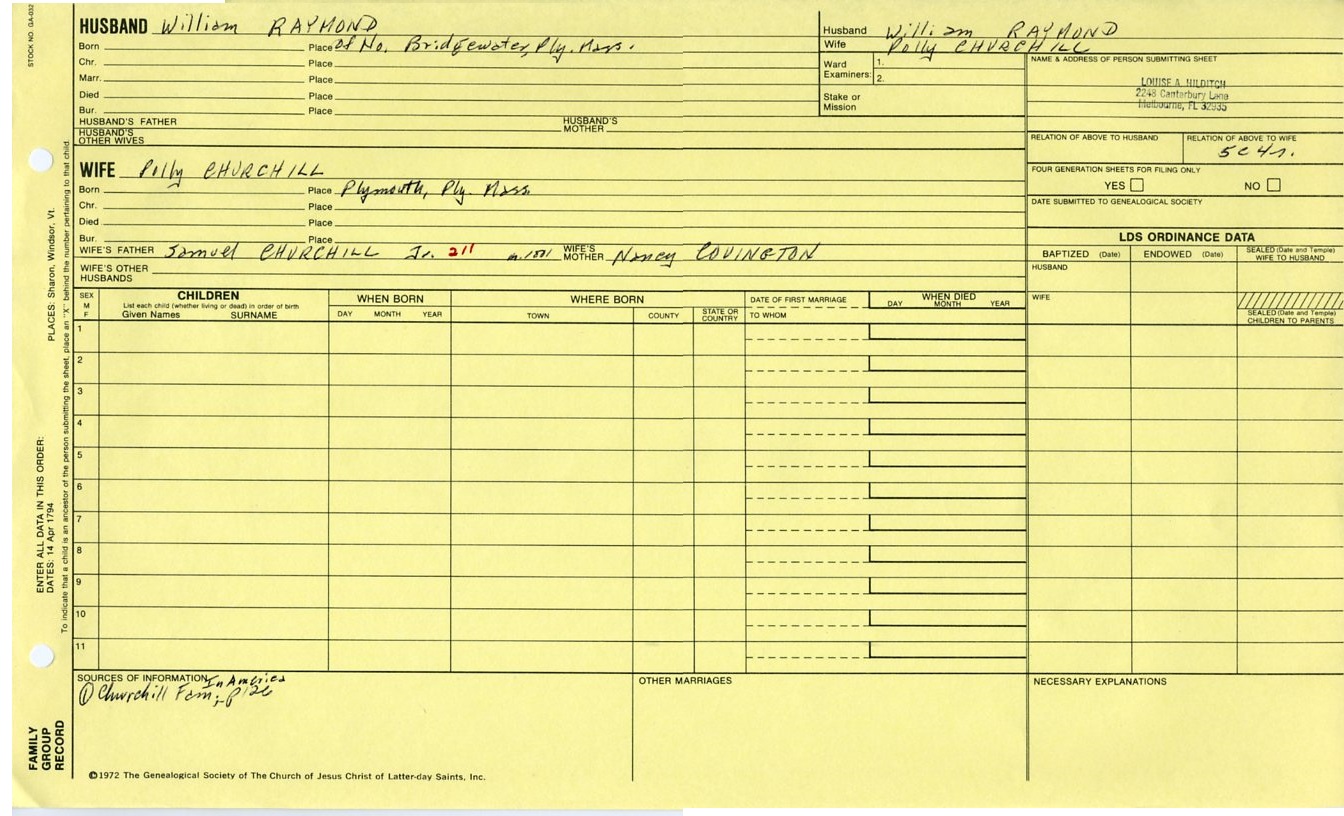 STOCK NO. GA-032
HUSBAND William RAYMOND
Born Place of No. Bridgewater, Ply. Mass.
Chr. Place
Marr. Place
Died Place
Bur. Place
HUSBAND'S FATHER HUSBAND'S MOTHER
HUSBAND'S OTHER WIVES
Husband William RAYMOND
Wife Polly CHURCHILL
Ward Examiners: 1.
2.
Stake or Mission
NAME & ADDRESS OF PERSON SUBMITTING SHEET
LOUISE A. HILDITCH
2248 Canterbury Lane
Melbourne, FL 32935
RELATION OF ABOVE TO HUSBAND RELATION OF ABOVE TO WIFE
5C4r.
FOUR GENERATION SHEETS FOR FILING ONLY
YES NO
DATE SUBMITTED TO GENEALOGICAL SOCIETY
WIFE Polly CHURCHILL
Born Place Plymouth, Ply. Mass.
Chr. Place
Died Place
Bur. Place
WIFE'S FATHER Samuel CHURCHILL Jr. 211 m.1801 WIFE'S MOTHER Nancy COVINGTON
WIFE'S OTHER HUSBANDS
LDS ORDINANCE DATA
BAPTIZED (Date) ENDOWED (Date) SEALED (Date and Temple) WIFE TO HUSBAND
HUSBAND
WIFE
SEALED (Date and Temple) CHILDREN TO PARENTS
SEX M F
CHILDREN
List each child (whether living or dead) in order of birth
Given Names SURNAME
WHEN BORN
DAY MONTH YEAR
WHERE BORN
TOWN COUNTY STATE OR COUNTRY
DATE OF FIRST MARRIAGE
TO WHOM
WHEN DIED
DAY MONTH YEAR
1
2
3
4
5
6
7
8
9
10
11
SOURCES OF INFORMATION In America
① Churchill Fam; p126
OTHER MARRIAGES
NECESSARY EXPLANATIONS
©1972 The Genealogical Society of The Church of Jesus Christ of Latter-day Saints, Inc.
FAMILY GROUP RECORD
ENTER ALL DATA IN THIS ORDER:
DATES: 14 Apr 1794
PLACES: Sharon, Windsor, Vt.
To indicate that a child is an ancestor of the person submitting the sheet, place an "X" behind the number pertaining to that child.